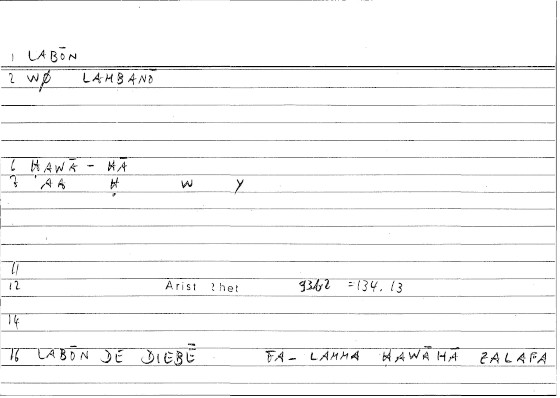 1 LABŌN
2 WØ LAMBANŌ
6 ḤAWĀ - HĀ
7 'AA Ḥ W Y
11
12 Arist Rhet 93b2 =134,13
14
16 LABŌN DE DIEBĒ FA- LAMMA ḤAWĀHĀ ZALAFA